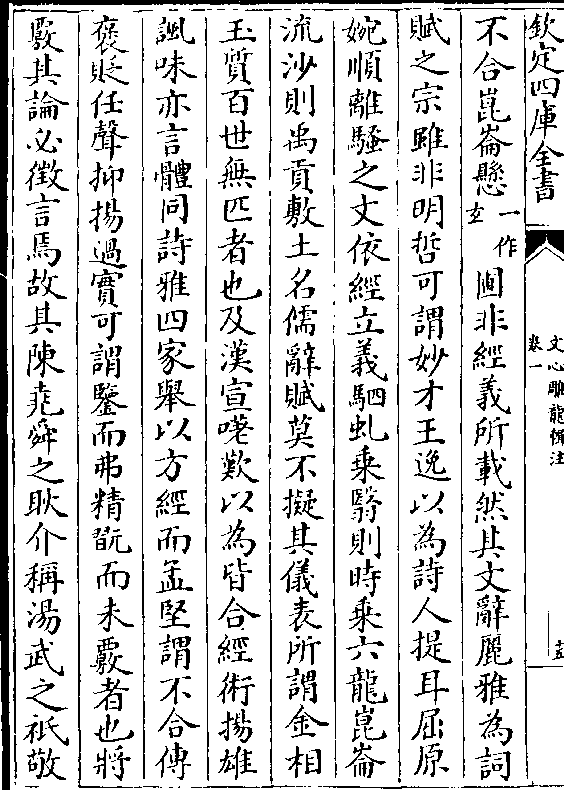 欽定四庫全書
文心雕龍輯注
卷一
不合崑崙懸一作玄圃非經義所載然其文辭麗雅為詞
賦之宗雖非明哲可謂妙才王逸以為詩人提耳屈原
婉順離騷之文依經立義駟虬乗翳則時乗六龍崑崙
流沙則禹貢敷土名儒辭賦莫不擬其儀表所謂金相
玉質百世無匹者也及漢宣嗟歎以為皆合經術揚雄
諷味亦言體同詩雅四家舉以方經而孟堅謂不合傳
褒貶任聲抑揚過實可謂鑒而弗精翫而未覈者也將
覈其論必徵言焉故其陳堯舜之耿介稱湯武之祗敬